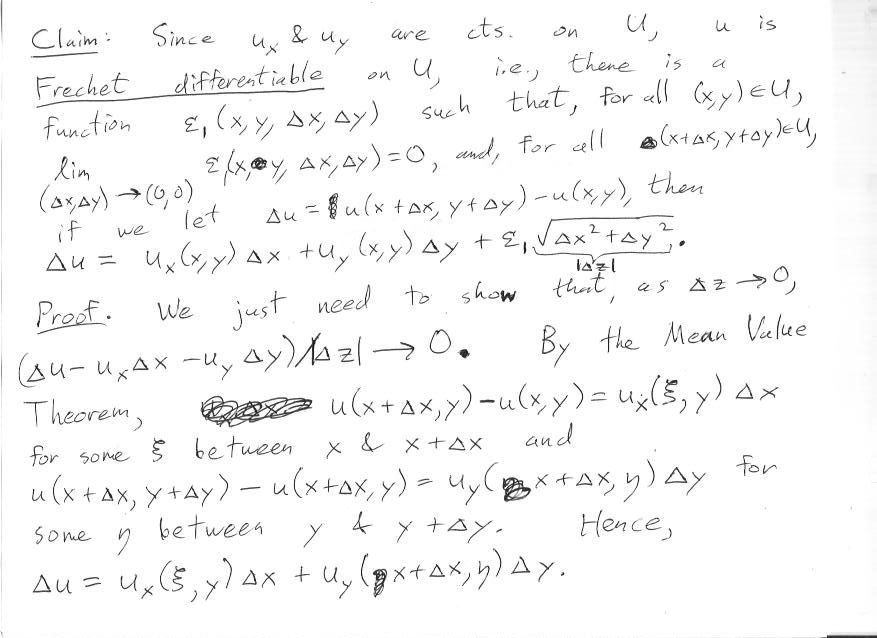 Claim: Since uₓ & u_y are cts. on U, u is
Frechet differentiable on U, i.e., there is a
function ε₁(x, y, Δx, Δy) such that, for all (x,y)∈U,
lim ε₁(x, y, Δx, Δy)=0, and, for all (x+Δx, y+Δy)∈U,
(Δx,Δy)→(0,0)
if we let Δu = u(x+Δx, y+Δy)-u(x,y), then
Δu = uₓ(x,y) Δx + u_y(x,y) Δy + ε₁√(Δx²+Δy²).
|Δz|
Proof. We just need to show that, as Δz→0,
(Δu-uₓΔx-u_yΔy)/|Δz|→0. By the Mean Value
Theorem, u(x+Δx,y)-u(x,y)=uₓ(ξ,y)Δx
for some ξ between x & x+Δx and
u(x+Δx, y+Δy)-u(x+Δx, y)= u_y(x+Δx, η)Δy for
some η between y & y+Δy. Hence,
Δu = uₓ(ξ,y)Δx + u_y(x+Δx, η)Δy.